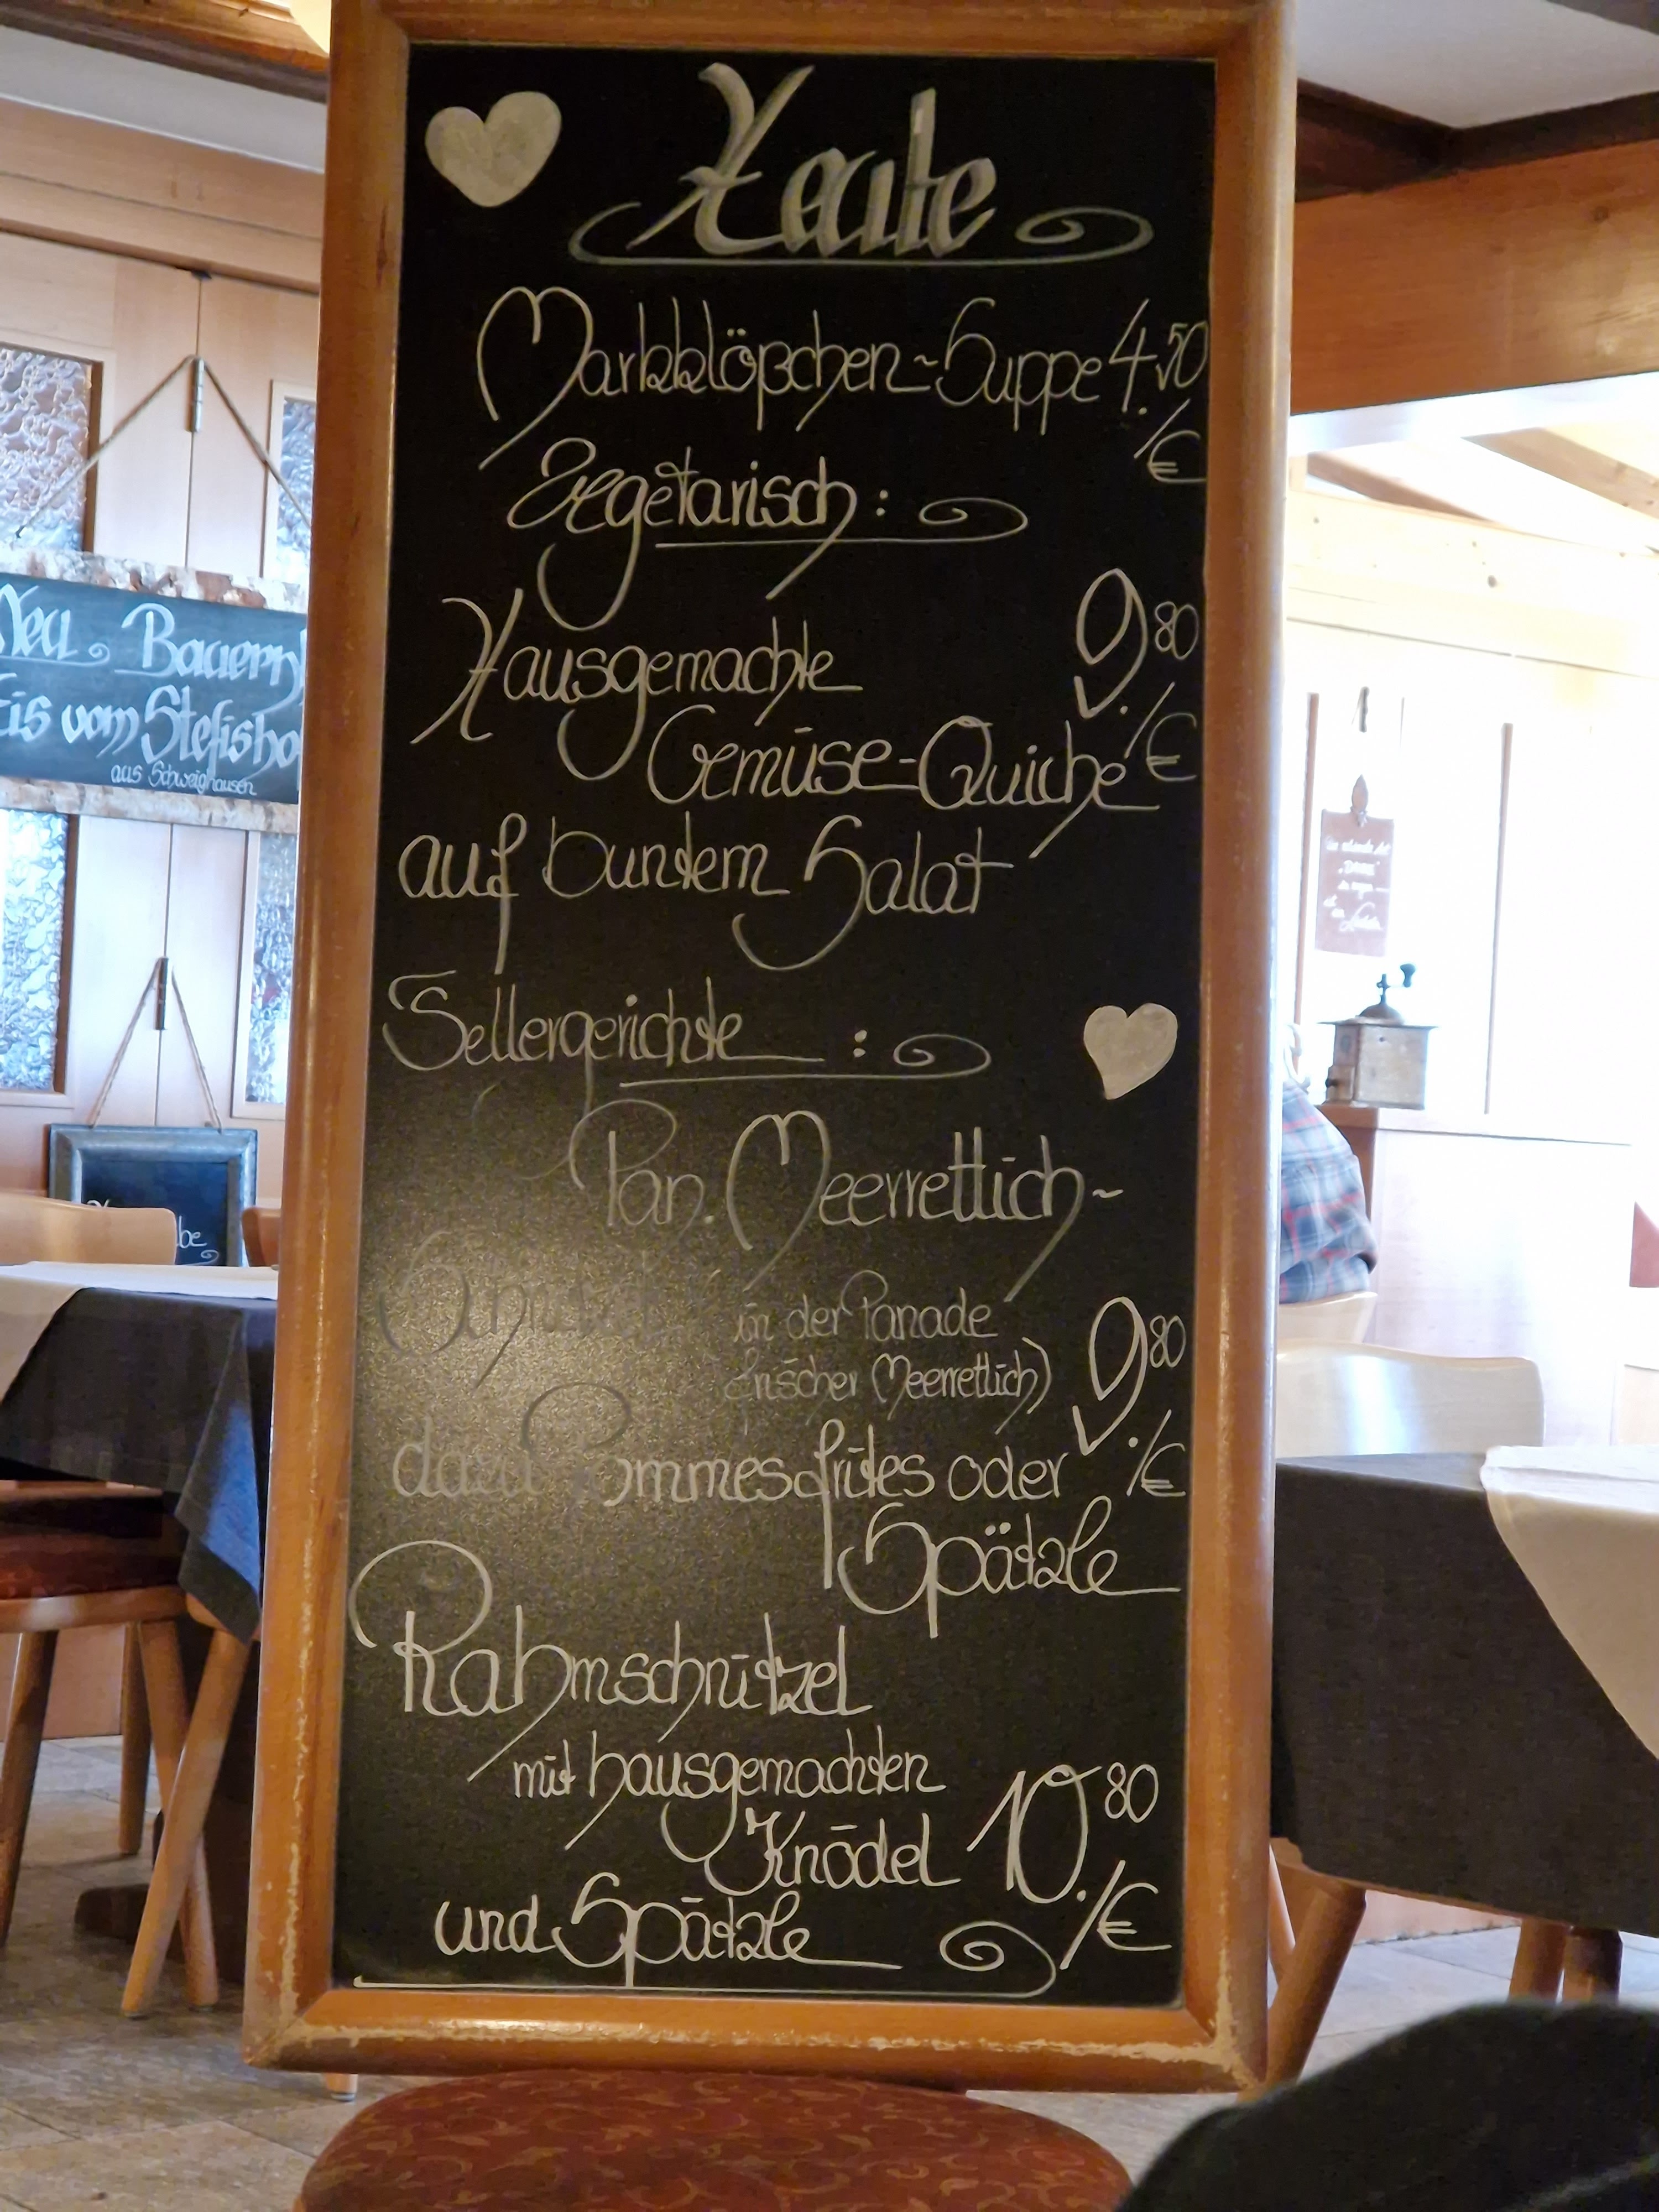 Heute
Markklößchen-Suppe 4.50
./€
Vegetarisch:
Hausgemachte 9.80
Gemüse-Quiche ./€
auf buntem Salat
Tellergerichte :
Pan. Meerrettich-
in der Panade
frischer Meerrettich) 9.80
dazu Pommesfrites oder ./€
Spätzle
Rahmschnitzel
mit hausgemachten
Knödel 10.80
und Spätzle ./€
Neu Bauern
Eis vom Stefisho
aus Schweighausen
be